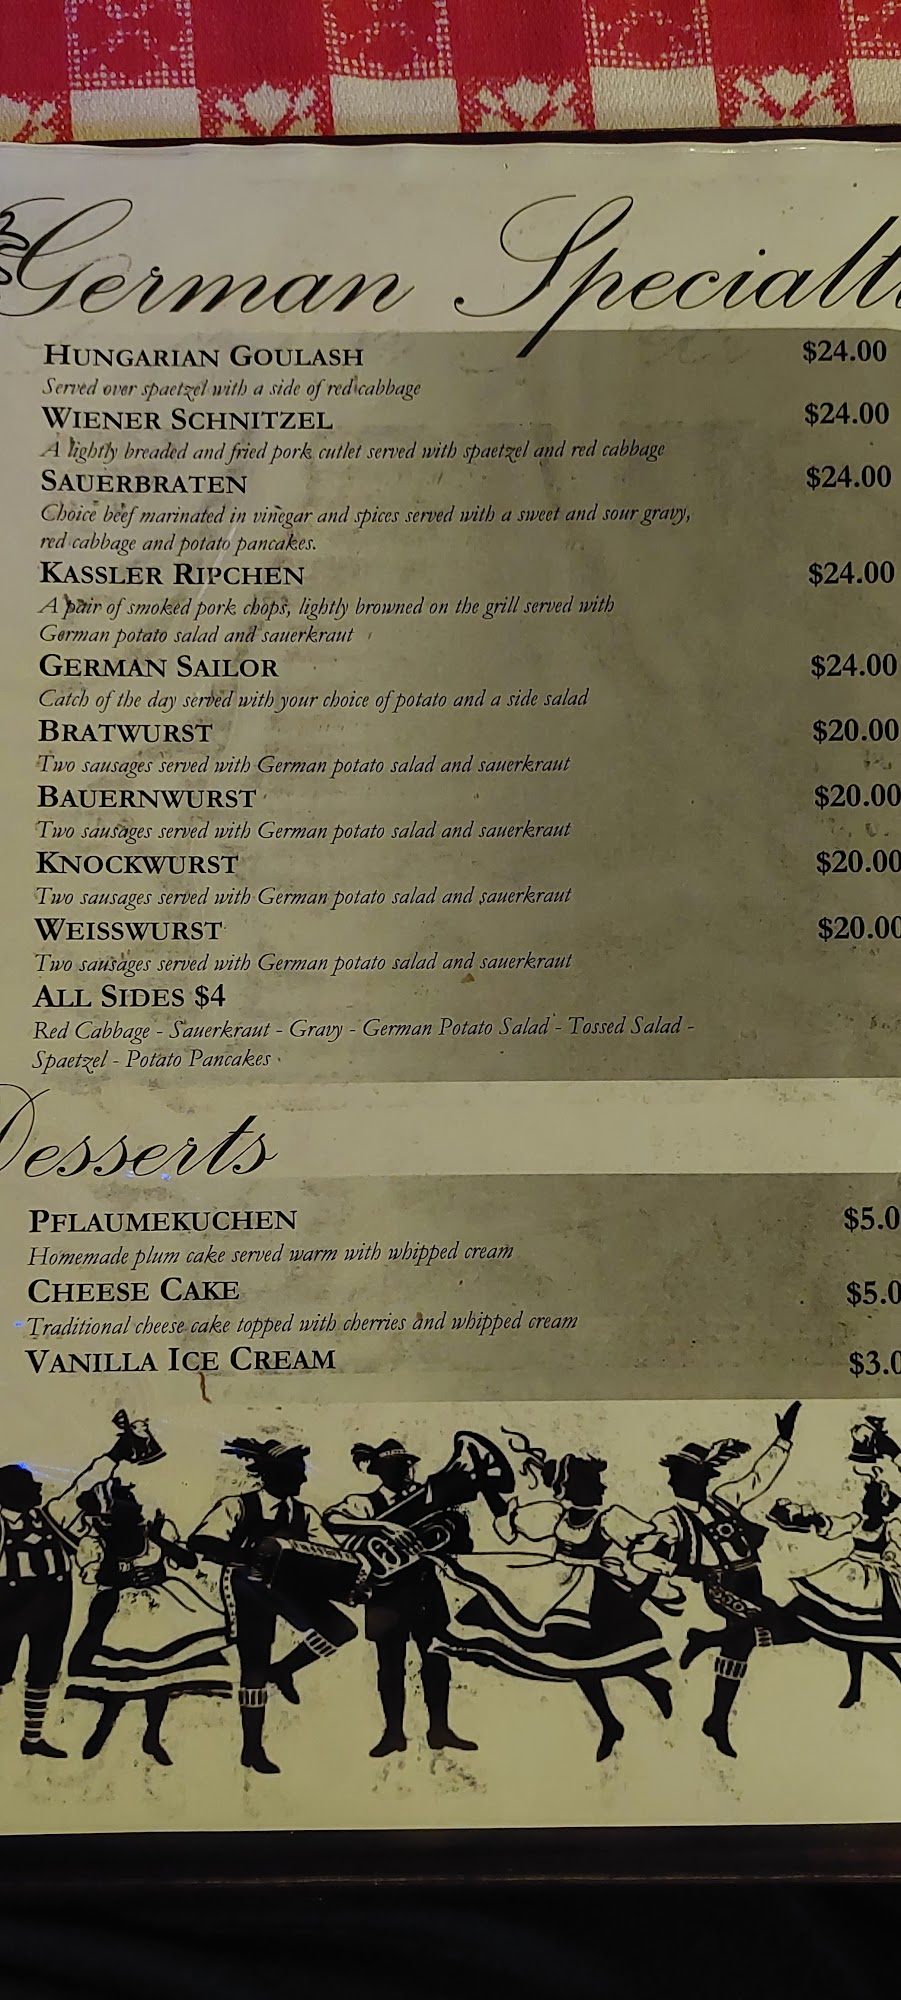 German Specialt
HUNGARIAN GOULASH $24.00
Served over spaetzel with a side of red cabbage
WIENER SCHNITZEL $24.00
A lightly breaded and fried pork cutlet served with spaetzel and red cabbage
SAUERBRATEN $24.00
Choice beef marinated in vinegar and spices served with a sweet and sour gravy,
red cabbage and potato pancakes.
KASSLER RIPCHEN $24.00
A pair of smoked pork chops, lightly browned on the grill served with
German potato salad and sauerkraut
GERMAN SAILOR $24.00
Catch of the day served with your choice of potato and a side salad
BRATWURST $20.00
Two sausages served with German potato salad and sauerkraut
BAUERNWURST $20.00
Two sausages served with German potato salad and sauerkraut
KNOCKWURST $20.00
Two sausages served with German potato salad and sauerkraut
WEISSWURST $20.00
Two sausages served with German potato salad and sauerkraut
ALL SIDES $4
Red Cabbage - Sauerkraut - Gravy - German Potato Salad - Tossed Salad -
Spaetzel - Potato Pancakes
Desserts
PFLAUMEKUCHEN $5.0
Homemade plum cake served warm with whipped cream
CHEESE CAKE $5.0
Traditional cheese cake topped with cherries and whipped cream
VANILLA ICE CREAM $3.0